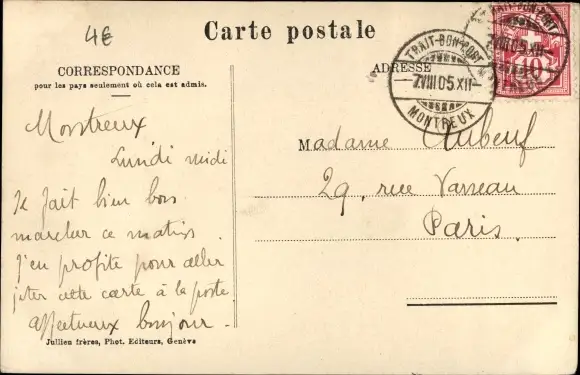 4€
Carte postale
CORRESPONDANCE
pour les pays seulement où cela est admis.
ADRESSE
TRAIT-BON-PORT
7.VIII.05.XII-
MONTREUX
10
Montreux
Lundi midi
Il fait bien bon
marcher ce matin.
J'en profite pour aller
jeter cette carte à la poste
affectueux bonjour.
Madame Aubeuf
29, rue Vaneau
Paris.
Jullien frères, Phot. Editeurs, Genève